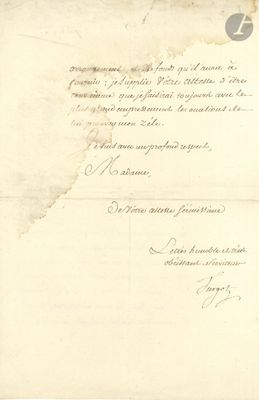 arrangement et des fonds qu'il aura à
fournir; je supplie Vôtre Altesse d'être
convaincue que je saisirai toujours avec le
plus grand empressement les occasions de
lui prouver mon Zèle.
Je suis avec un profond respect,
Madame,
De Vôtre altesse sérénissime
Le très humble et très
obéissant serviteur
Turgot